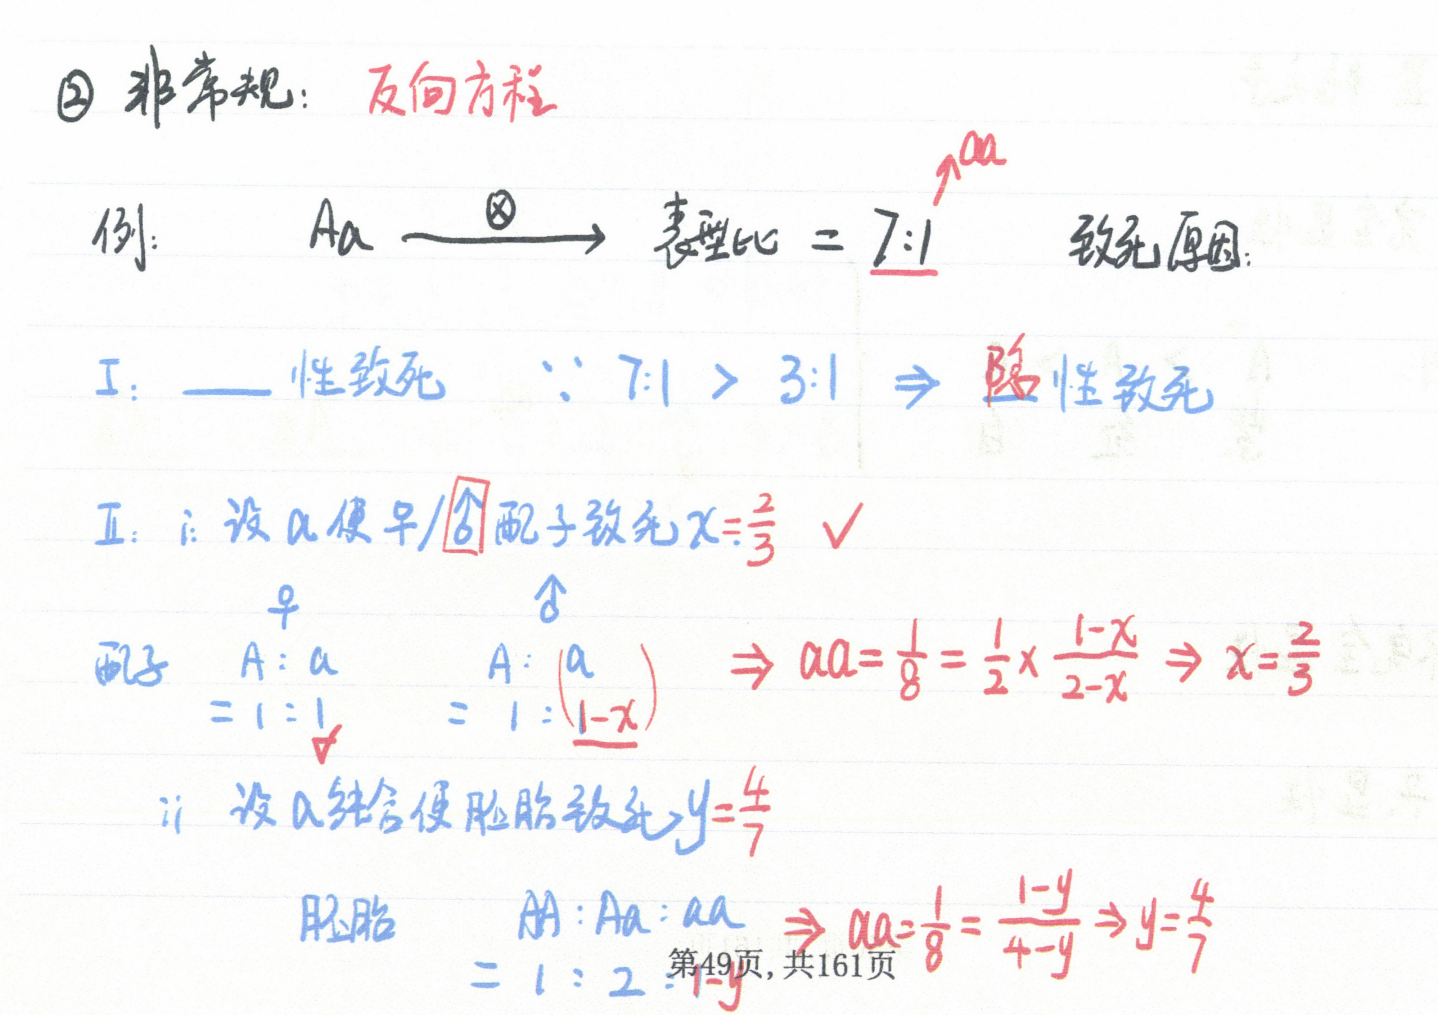 ② 非常规: 反向方程
aa
例: Aa ⊗→ 表型比 = 7:1 致死原因:
I: ___ 性致死 ∵ 7:1 > 3:1 ⇒ 隐性致死
II: i: 设a使♀/♂配子致死x=2/3 ✓
♀ ♂
配子 A:a A:a ⇒ aa=1/8=1/2×(1-x)/(2-x) ⇒ x=2/3
=1:1 =1:(1-x)
ii 设a结合使胚胎致死y=4/7
胚胎 AA:Aa:aa ⇒ aa=1/8=(1-y)/(4-y) ⇒ y=4/7
=1:2:1-y
第49页, 共161页